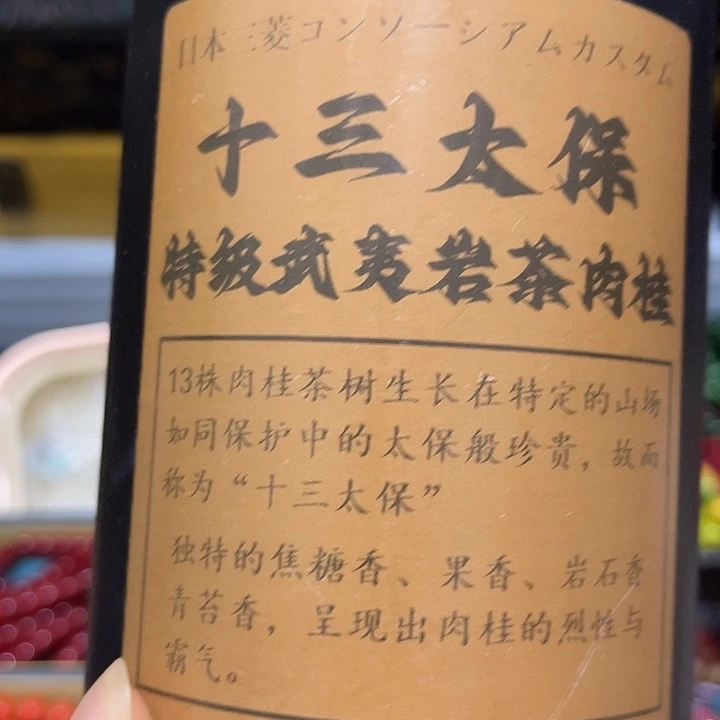 日本三菱コンソーシアムカスタム
十三太保
特级武夷岩茶肉桂
13株肉桂茶树生长在特定的山场
如同保护中的太保般珍贵，故而
称为“十三太保”
独特的焦糖香、果香、岩石香
青苔香，呈现出肉桂的烈性与
霸气。